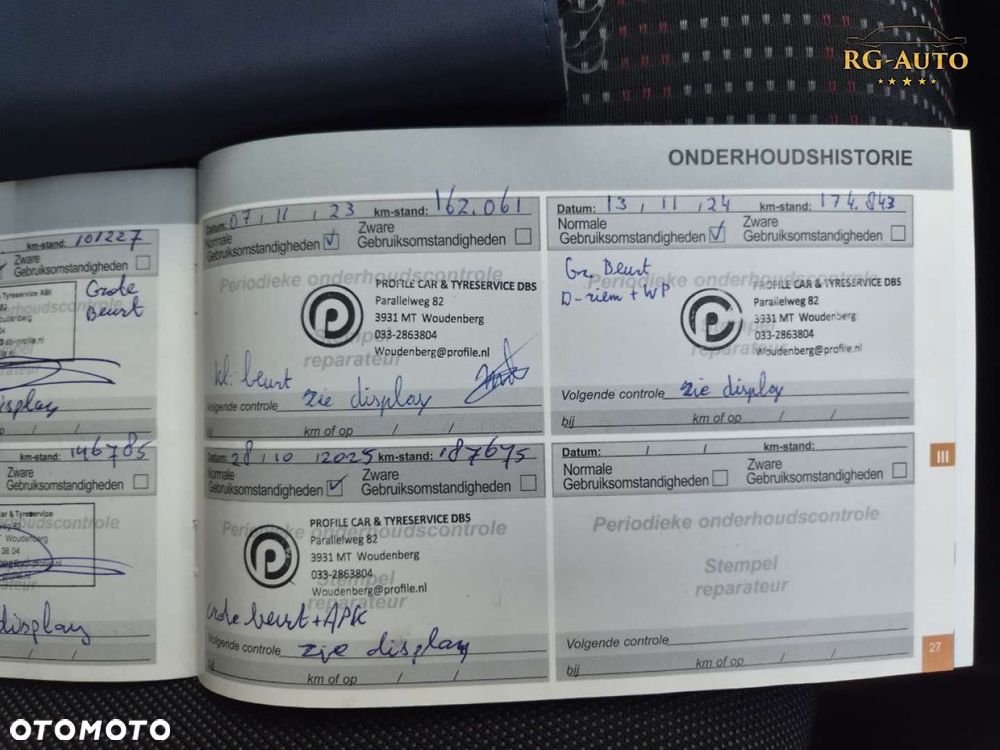 RG-AUTO
ONDERHOUDSHISTORIE
km-stand: 101227
Zware
Gebruiksomstandigheden
Tyreservice
Grote
Beurt
display
km-stand: 146785
Zware
Gebruiksomstandigheden
Car & Tyreservice
display
Datum: 07 / 11 / 23 km-stand: 162.061
Normale
Gebruiksomstandigheden
Zware
Gebruiksomstandigheden
Periodieke onderhoudscontrole
Stempel
reparateur
PROFILE CAR & TYRESERVICE DBS
Parallelweg 82
3931 MT Woudenberg
033-2863804
Woudenberg@profile.nl
kl. beurt
Volgende controle zie display
bij km of op / /
Datum: 13 / 11 / 24 km-stand: 174.843
Normale
Gebruiksomstandigheden
Zware
Gebruiksomstandigheden
Gr. Beurt
D-riem + WP
Periodieke onderhoudscontrole
Stempel
reparateur
PROFILE CAR & TYRESERVICE DBS
Parallelweg 82
3931 MT Woudenberg
033-2863804
Woudenberg@profile.nl
Volgende controle zie display
bij km of op / /
Datum: 28 / 10 / 2025 km-stand: 187675
Normale
Gebruiksomstandigheden
Zware
Gebruiksomstandigheden
Periodieke onderhoudscontrole
Stempel
reparateur
PROFILE CAR & TYRESERVICE DBS
Parallelweg 82
3931 MT Woudenberg
033-2863804
Woudenberg@profile.nl
Grote beurt + APK
Volgende controle zie display
bij km of op / /
Datum: / / km-stand:
Normale
Gebruiksomstandigheden
Zware
Gebruiksomstandigheden
Periodieke onderhoudscontrole
Stempel
reparateur
Volgende controle
bij km of op / /
III
27
OTOMOTO